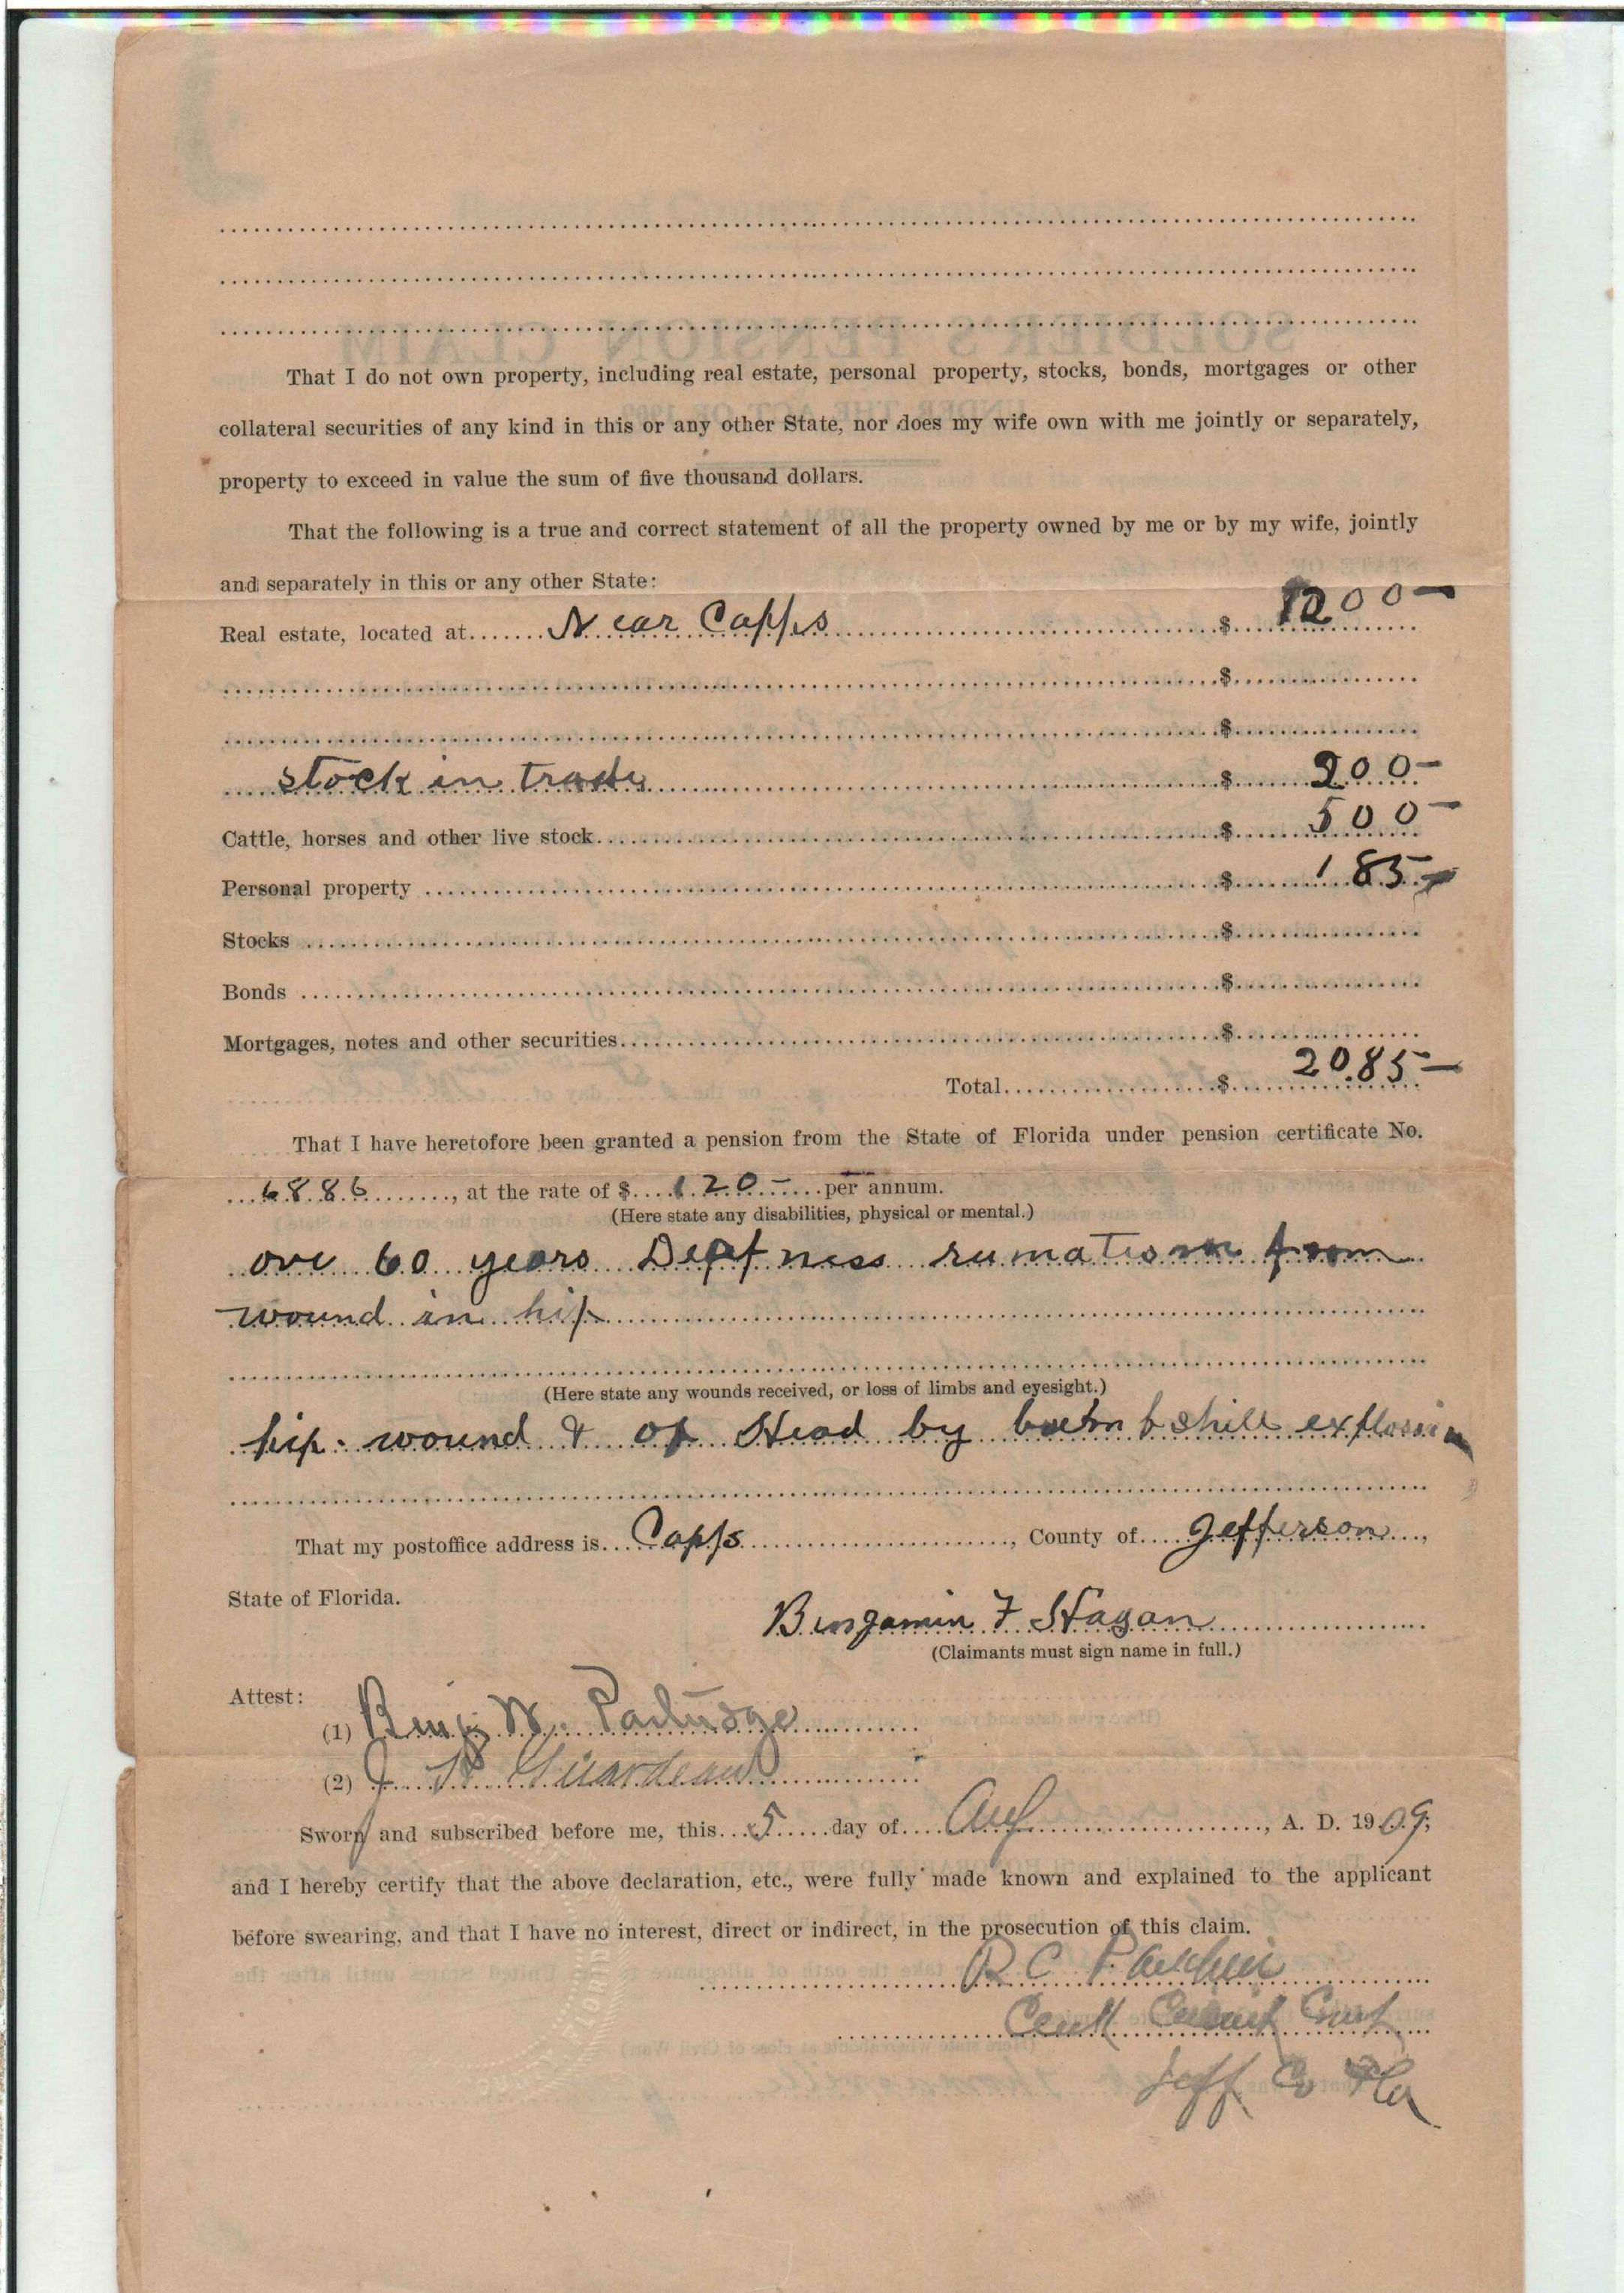 That I do not own property, including real estate, personal property, stocks, bonds, mortgages or other
collateral securities of any kind in this or any other State, nor does my wife own with me jointly or separately,
property to exceed in value the sum of five thousand dollars.
That the following is a true and correct statement of all the property owned by me or by my wife, jointly
and separately in this or any other State:
Real estate, located at Near Capps $ 1200-
$
$
Stock in trade $ 200-
Cattle, horses and other live stock $ 500-
Personal property $ 185-
Stocks $
Bonds $
Mortgages, notes and other securities $
Total $ 2085-
That I have heretofore been granted a pension from the State of Florida under pension certificate No.
6886, at the rate of $ 120- per annum.
(Here state any disabilities, physical or mental.)
ove 60 years Deafness rumatism from
wound in hip
(Here state any wounds received, or loss of limbs and eyesight.)
hip wound & of Head by shell explosion
That my postoffice address is Capps, County of Jefferson,
State of Florida.
Benjamin F Hagan
(Claimants must sign name in full.)
Attest:
(1) Benj W. Partridge
(2) J Girardeau
Sworn and subscribed before me, this 5 day of Aug, A. D. 1909;
and I hereby certify that the above declaration, etc., were fully made known and explained to the applicant
before swearing, and that I have no interest, direct or indirect, in the prosecution of this claim.
R C
Clerk Circuit Court
Jeff Co Fla